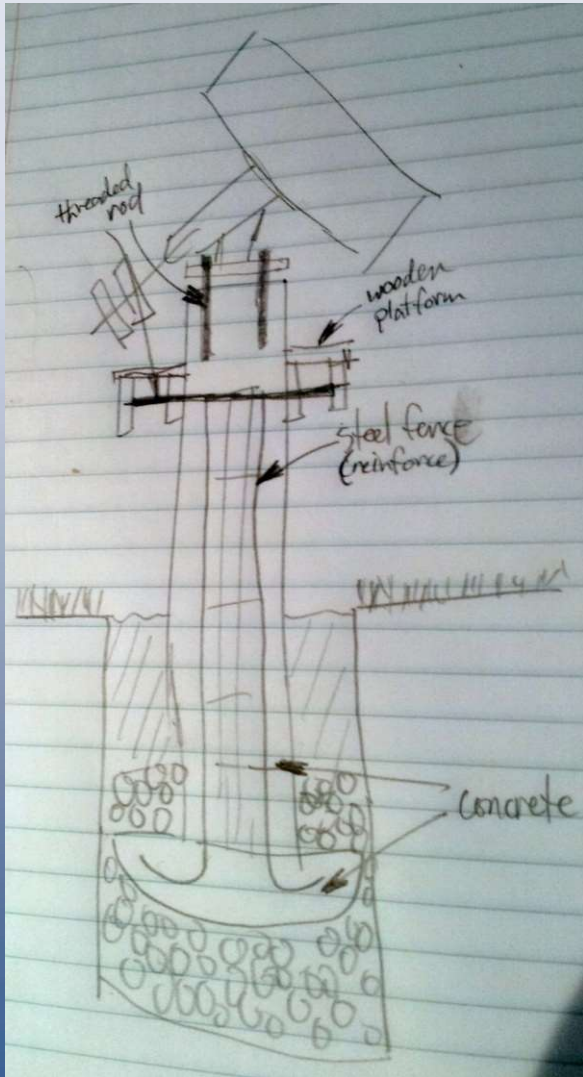 threaded
rod
wooden
platform
steel fence
(reinforce)
concrete